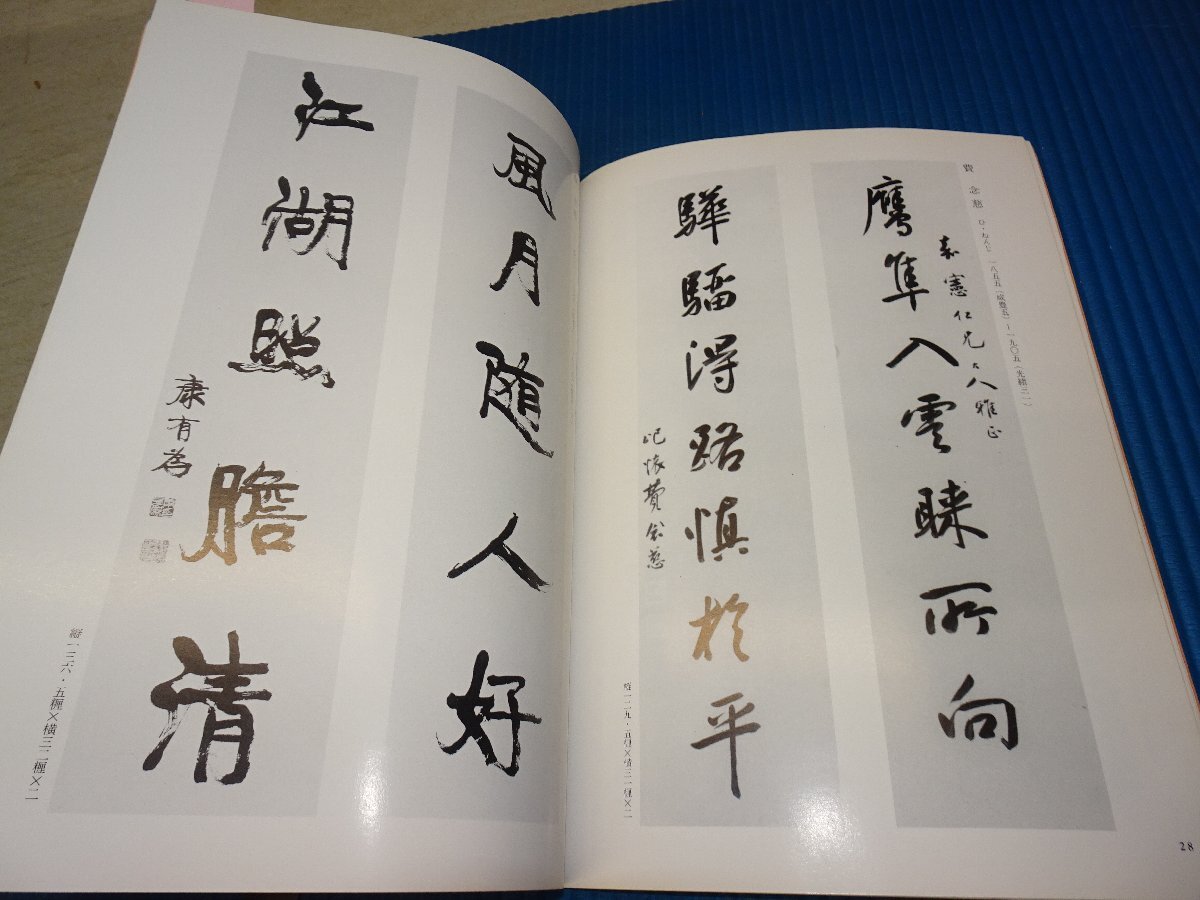 費念慈 ひ・ねんじ 一八五五(咸豊五)−一九〇五(光緒三一)
鷹隼入雲睐所向
嘉憲仁兄大人雅正
驊騮得路慎於平
屺懐費念慈
縦一二九・五糎×横三一糎×二
28
風月随人好
江湖照膽清
康有為
縦一三六・五糎×横三二糎×二